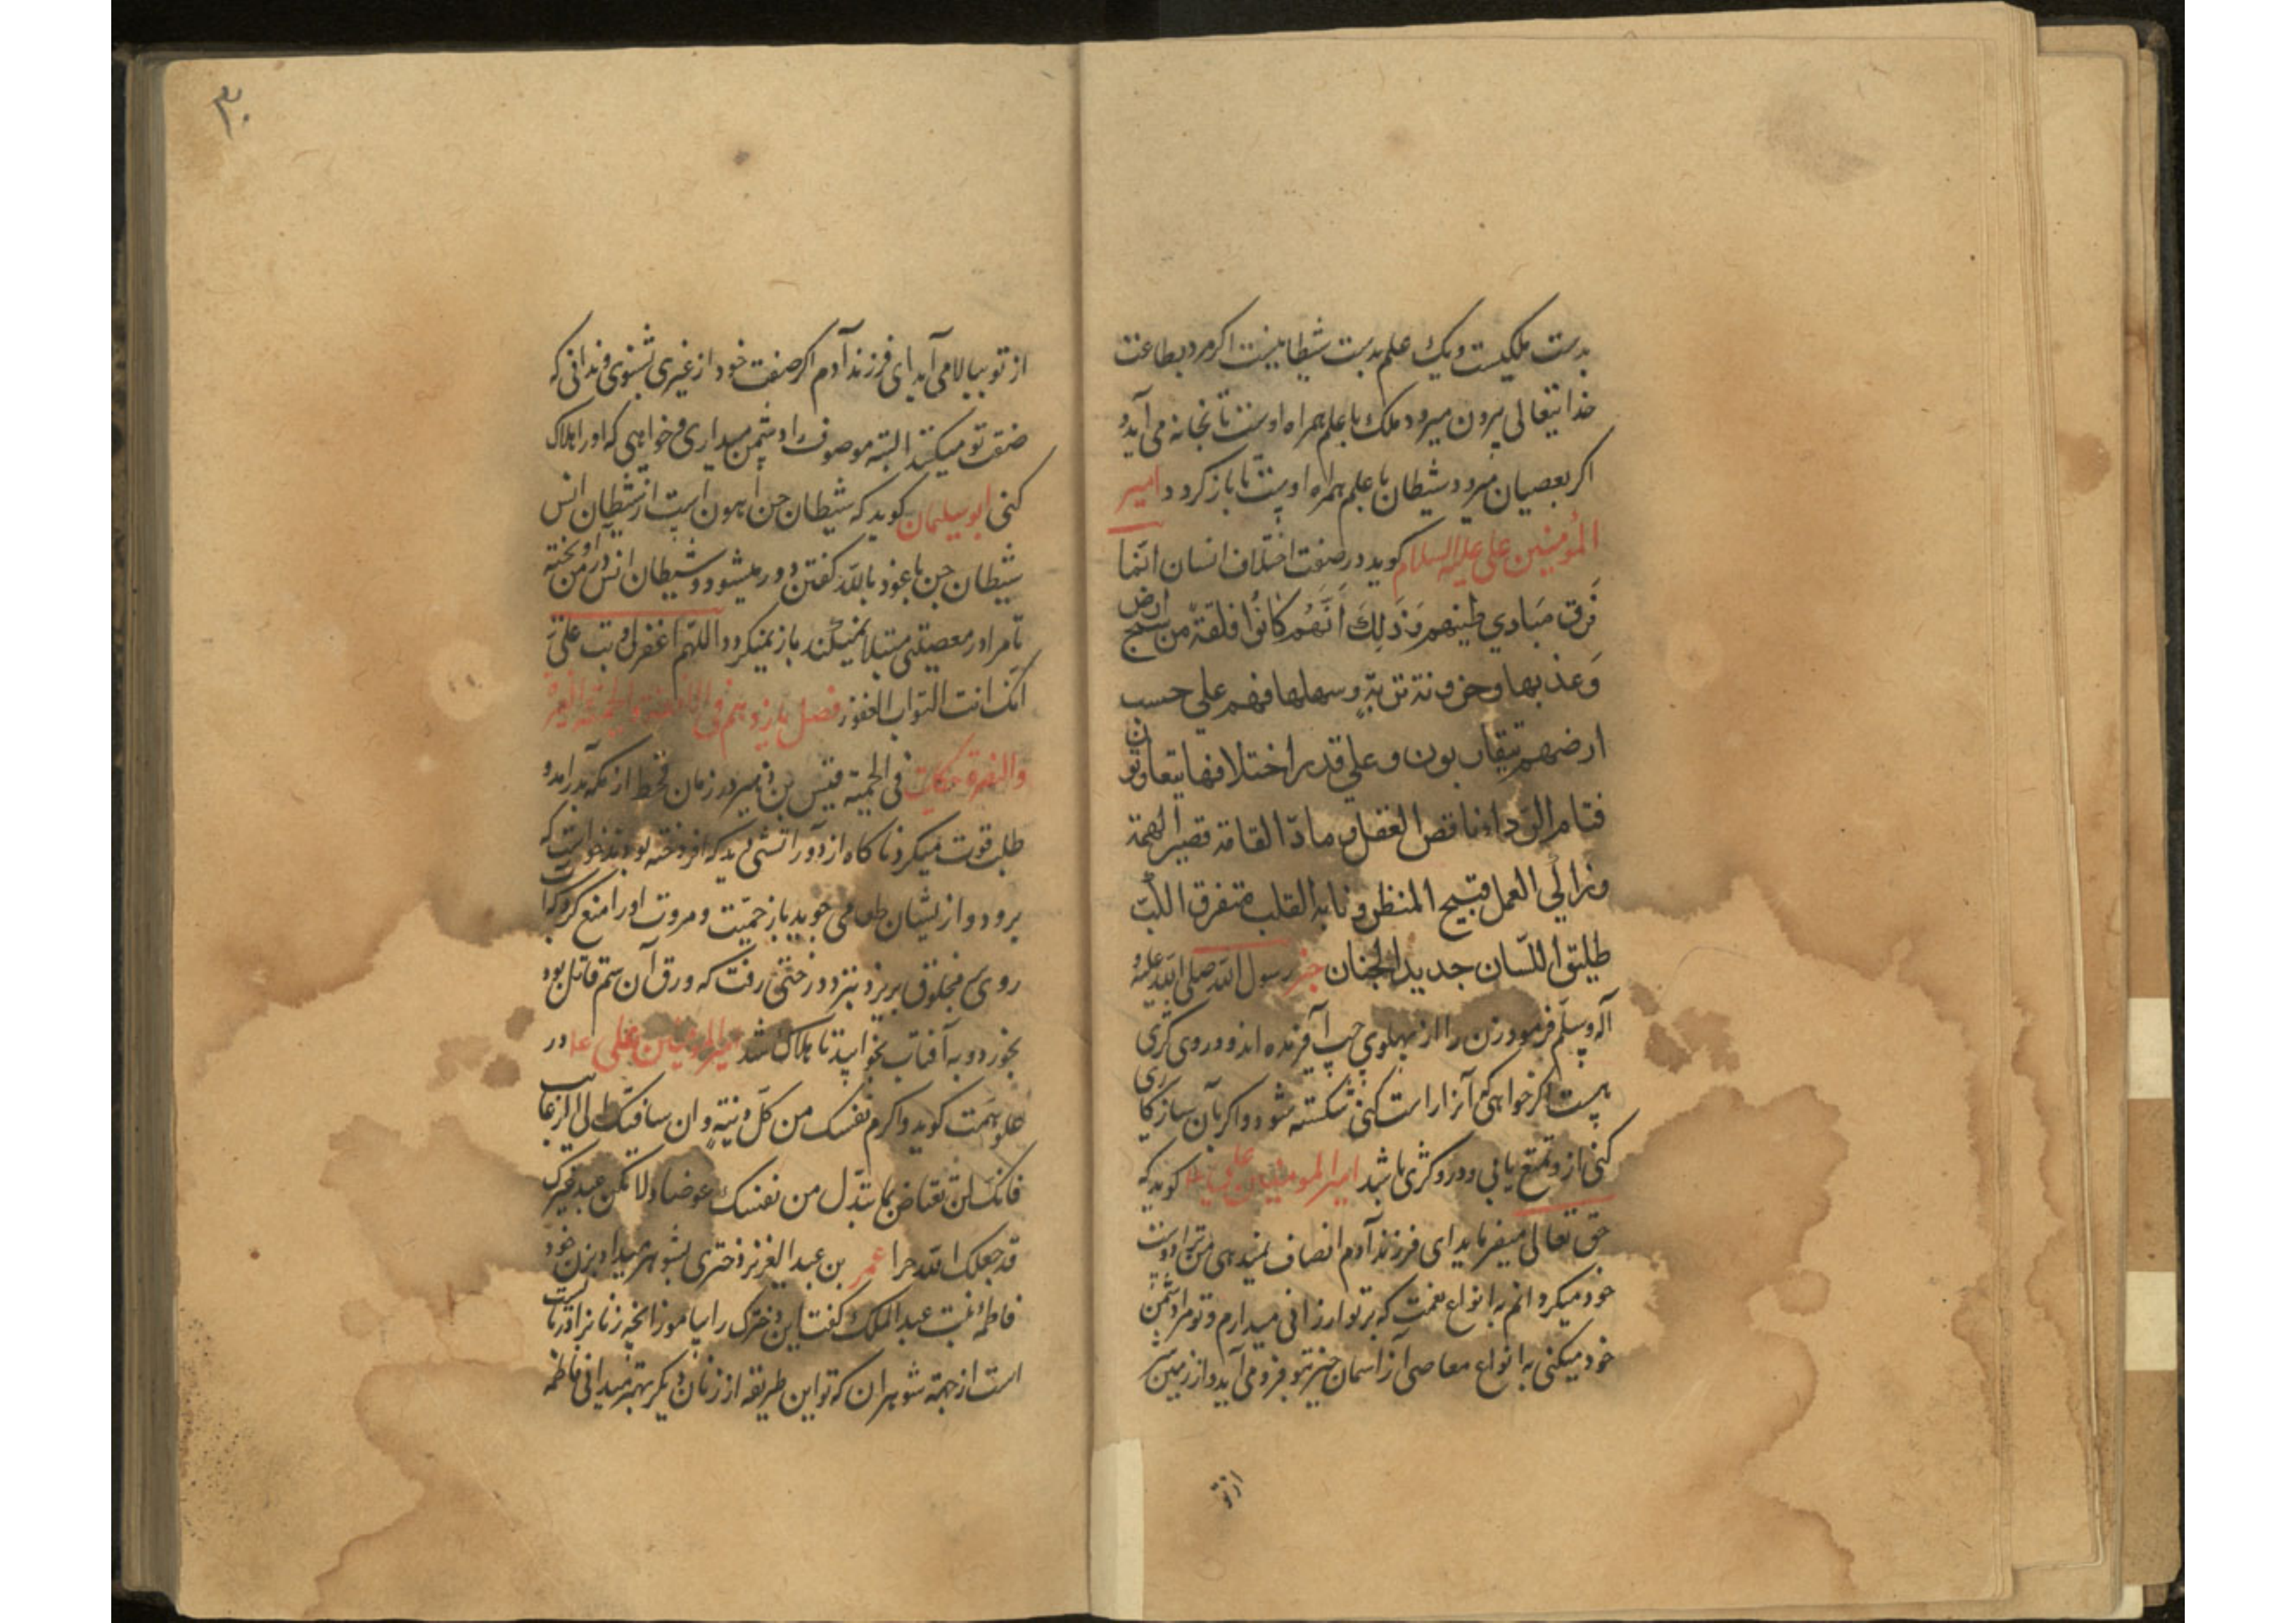 بدست ملکیست و یک علم بدست شیطانیست اکر مرد بطاعت
خدایتعالی بیرون میرود ملک با علم همراه اوست تا بخانه می آید و
اکر بعصیان میرود شیطان با علم همراه اوست تا باز کردد امیر
المؤمنین علی علیه السلام کوید در صفت اختلاف انسان انما
فرق مبادي طینهم و ذلك أنهم كانوا فلقة من سبخ ارض
وعذبها وحزونة تربة وسهلها فهم علي حسب
ارضهم يتقاربون وعلي قدر اختلافها يتفاوتون
فتام الرداء ناقص العقل وماد القامة قصير الهمة
وزاكي العمل قبيح المنظر و القلب متفرق اللب
طليق اللسان حديد الجنان خبر رسول الله صلی الله علیه و
آله وسلم فرمود زن را از پهلوی چپ آفریده اند و در وی کژی
هست اکر خواهی که آنرا راست کنی شکسته شود و اکر بآن سازکاری
کنی از و تمتع یابی و در و کژی باشد امیر المومنین علی کوید که
حق تعالی میفرماید ای فرزند آدم انصاف نمیدهی من ترا دوست
خود میکردانم به انواع نعمت که بر تو ارزانی میدارم و تو مرا دشمن
خود میکنی به انواع معاصی از آسمان خیر بتو فرو می آید و از زمین شر
از تو
۳۰
از تو ببالا می آید ای فرزند آدم اکر صفت خود از غیری شنوی و ندانی که
صفت تو میکنند البته موصوف را دشمن میداری و خواهی که او را هلاک
کنی ابو سلیمان کوید که شیطان جن اهون است از شیطان انس
شیطان جن با عوذ بالله کفتن دور میشود و شیطان انس در من آویخته
تا مرا در معصیتی مبتلا نمیکند باز نمیکردد اللهم اغفر لی و تب علی
انک انت التواب الغفور فصل یازدهم فی الانفة و الحمیة و الغیرة
حکایت فی الحمیة قیس بن در زمان قحط از مکه بدر آمد و
طلب قوت میکرد ناکاه از دور آتشی دید که افروخته بودند خواست که
برود و از ایشان طعامی جوید باز حمیت و مروت او را منع کرد که آب
روی پیش مخلوق بریزد نزد درختی رفت که ورق آن سم قاتل بود
بخورد و به آفتاب بخوابید تا هلاک شد امیر المؤمنین علی در
علو همت کوید و اکرم نفسک من کل دنیة و ان ساقتک الی الرغایب
فانک لن تعتاض بما تبذل من نفسک عوضا و لا تکن عبد غیرک
قد جعلک الله حرا عمر بن عبد العزیز دختری بشوهر میداد بزن خود
فاطمه بنت عبد الملک کفت این دخترک را بیاموز انچه زنانرا در بایست
است از جهة شوهران که تو این طریقه از زنان دیکر بهتر میدانی فاطمه